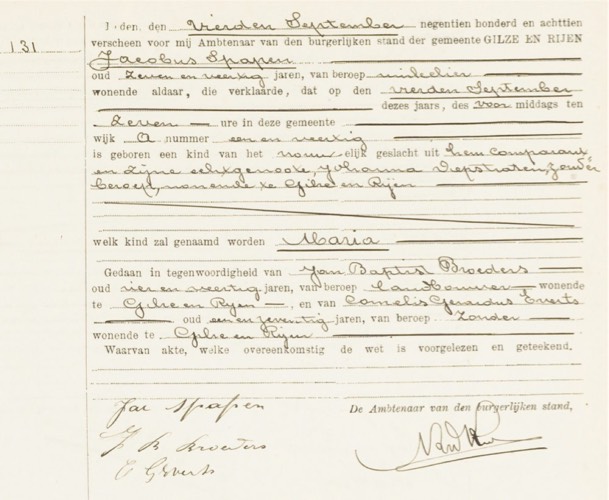 Heden, den Vierden September negentien honderd en achttien
131
verscheen voor mij Ambtenaar van den burgerlijken stand der gemeente GILZE EN RIJEN
Jacobus Spapen
oud zeven en veertig jaren, van beroep winkelier
wonende aldaar, die verklaarde, dat op den vierden September
dezes jaars, des voor middags ten
zeven ure in deze gemeente
wijk A nummer een en veertig
is geboren een kind van het vrouwelijk geslacht uit hem comparant
en zijne echtgenoote, Johanna Diepstraten, zonder
beroep, wonende te Gilze en Rijen
welk kind zal genaamd worden Maria
Gedaan in tegenwoordigheid van Jan Baptist Broeders
oud vier en veertig jaren, van beroep landbouwer wonende
te Gilze en Rijen, en van Cornelis Gerardus Everts
oud een en zeventig jaren, van beroep zonder
wonende te Gilze en Rijen
Waarvan akte, welke overeenkomstig de wet is voorgelezen en geteekend.
Jac Spapen
De Ambtenaar van den burgerlijken stand,
J B Broeders
C G Everts